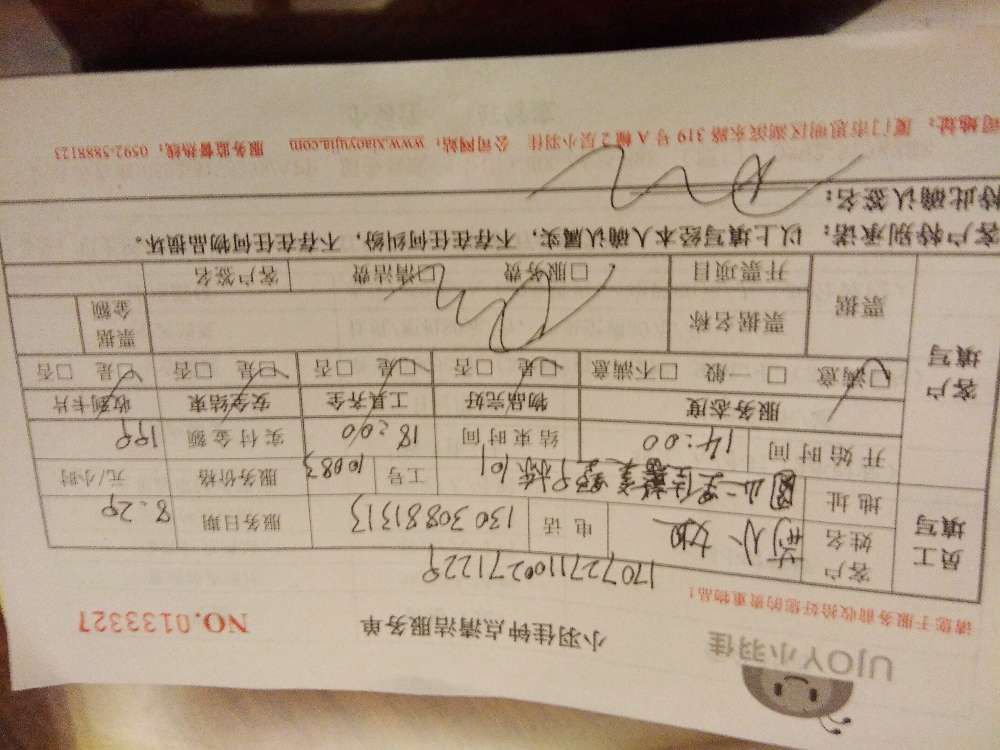 UJOY小羽佳
小羽佳钟点清洁服务单
NO.0133327
请您于服务前收拾好您的贵重物品!
1707271100271229
员工填写
客户姓名
小姐
电话
13030881313
服务日期
8.29
地址
工号
10083
服务价格
元/小时
开始时间
14:00
结束时间
18:00
实付金额
199
客户填写
服务态度
物品完好
工具齐全
安全结束
收到卡片
满意 一般 不满意
是 否
是 否
是 否
是 否
票据
票据名称
票据金额
开票项目
服务费 清洁费
客户签名
客户特别承诺:以上填写经本人确认属实,不存在任何纠纷,不存在任何物品损坏。
特此确认签名:
司地址:厦门市思明区湖滨东路 319 号 A 幢 2 层小羽佳 公司网站:www.xiaoyujia.com 服务监督热线:0592-5888123